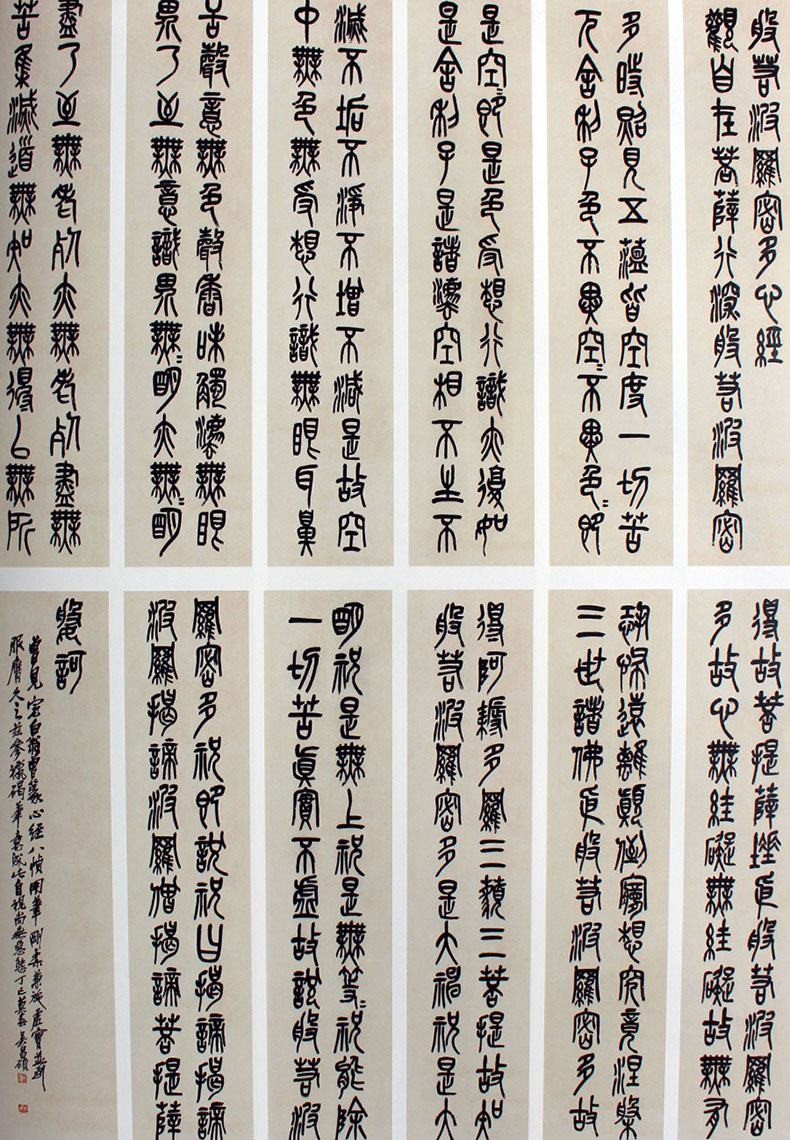 般若波羅密多心經
觀自在菩薩行深般若波羅密
多時照見五蘊皆空度一切苦
厄舍利子色不異空〻不異色〻即
是空〻即是色受想行識亦復如
是舍利子是諸灋空相不生不
滅不垢不淨不增不減是故空
中無色無受想行識無眼耳鼻
舌聲意無色聲香味觸灋無眼
界乃至無意識界無〻明亦無〻明
盡乃至無老死亦無老死盡無
苦集滅道無知亦無得以無所
得故菩提薩埵依般若波羅密
多故心無絓礙無絓礙故無有
恐怖遠離顛倒夢想究竟涅槃
三世諸佛依般若波羅密多故
得阿耨多羅三藐三菩提故知
般若波羅密多是大神祝是大
明祝是無上祝是無等〻祝能除
一切苦真實不虛故說般若波
羅密多祝即說祝曰揭諦揭諦
波羅揭諦波羅僧揭諦菩提薩
訶
曾見完白翁曾篆心经八幀用筆剛柔兼施虛實並到
服膺久之茲參獵碣筆意成此自視尚無惡態丁巳莫春吳昌碩